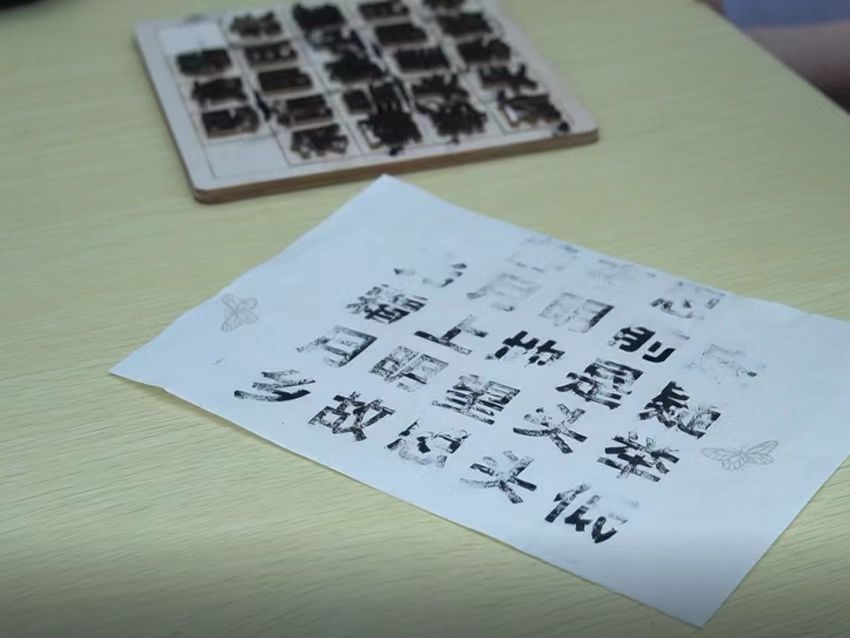 思
前明月
疑是地上霜
举头望明月
低头思故乡